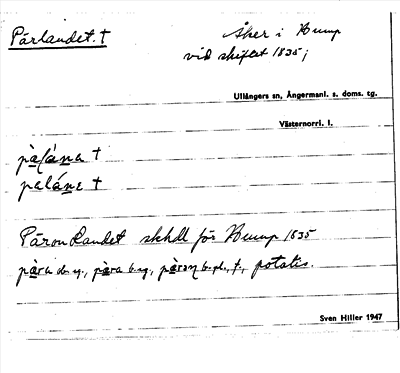 Pärlandet. †
Åker i Kump
vid skiftet 1835;
Ullångers sn, Ångermanl. s. doms. tg.
Västernorrl. l.
pàlána †
paláne †
PäronLandet skhdl för Kump 1835
pæra ob. sg., pæra b. sg., b. pl., f., potatis.
Sven Hiller 1947